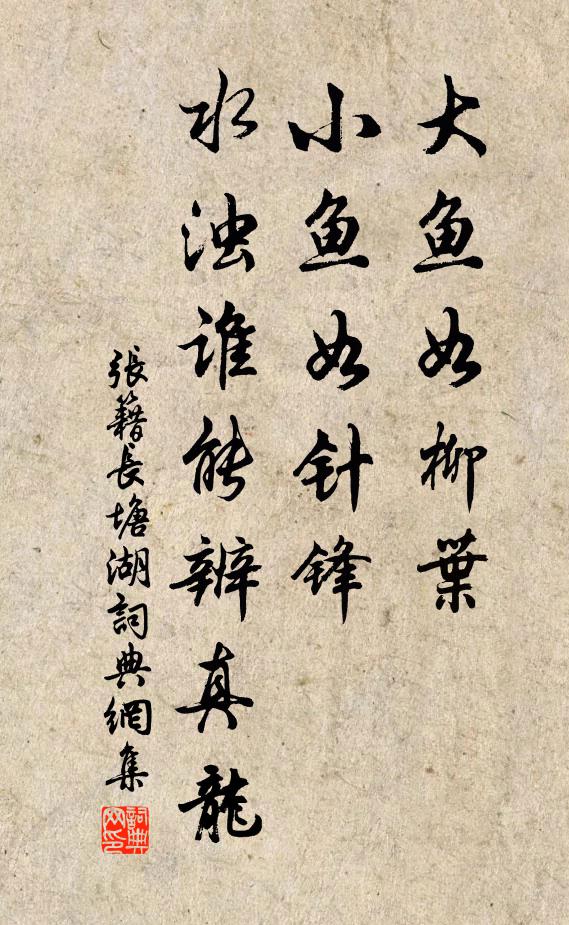 大鱼如柳葉
小鱼如针锋
水浊谁能辨真龍
張籍長塘湖詞典網集
詞典网印